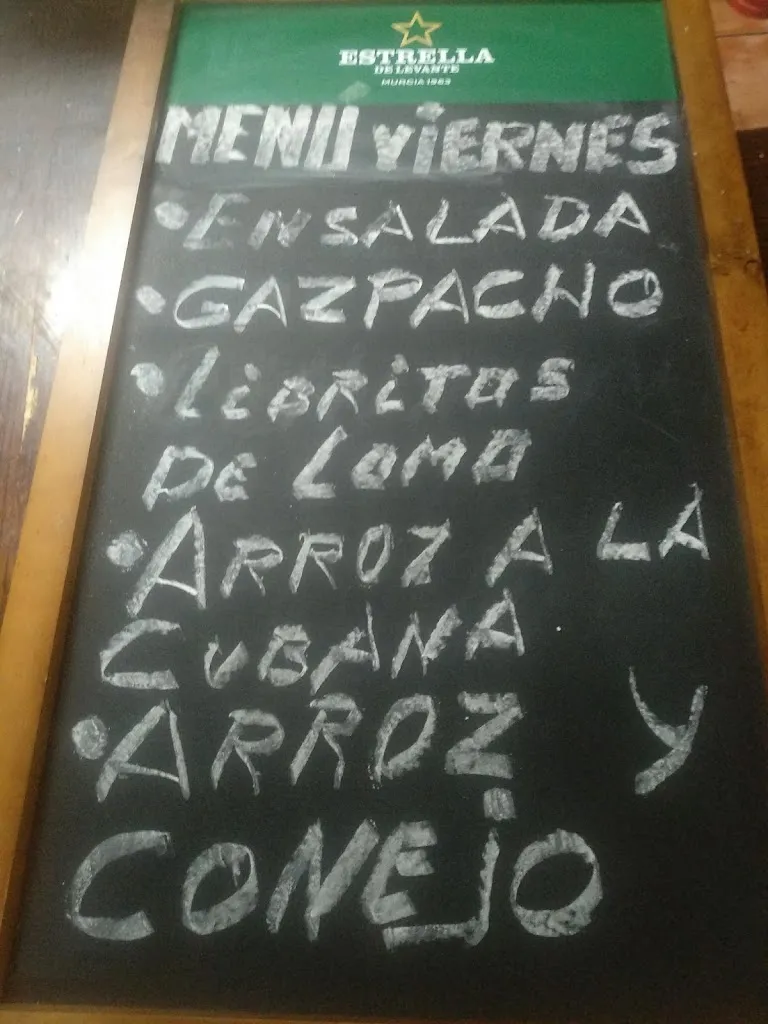 ESTRELLA
DE LEVANTE
MURCIA 1963
MENÚ VIERNES
• ENSALADA
• GAZPACHO
• LiBRiTOS
DE LOMO
• ARROZ A LA
CUBANA
• ARROZ Y
CONEJO